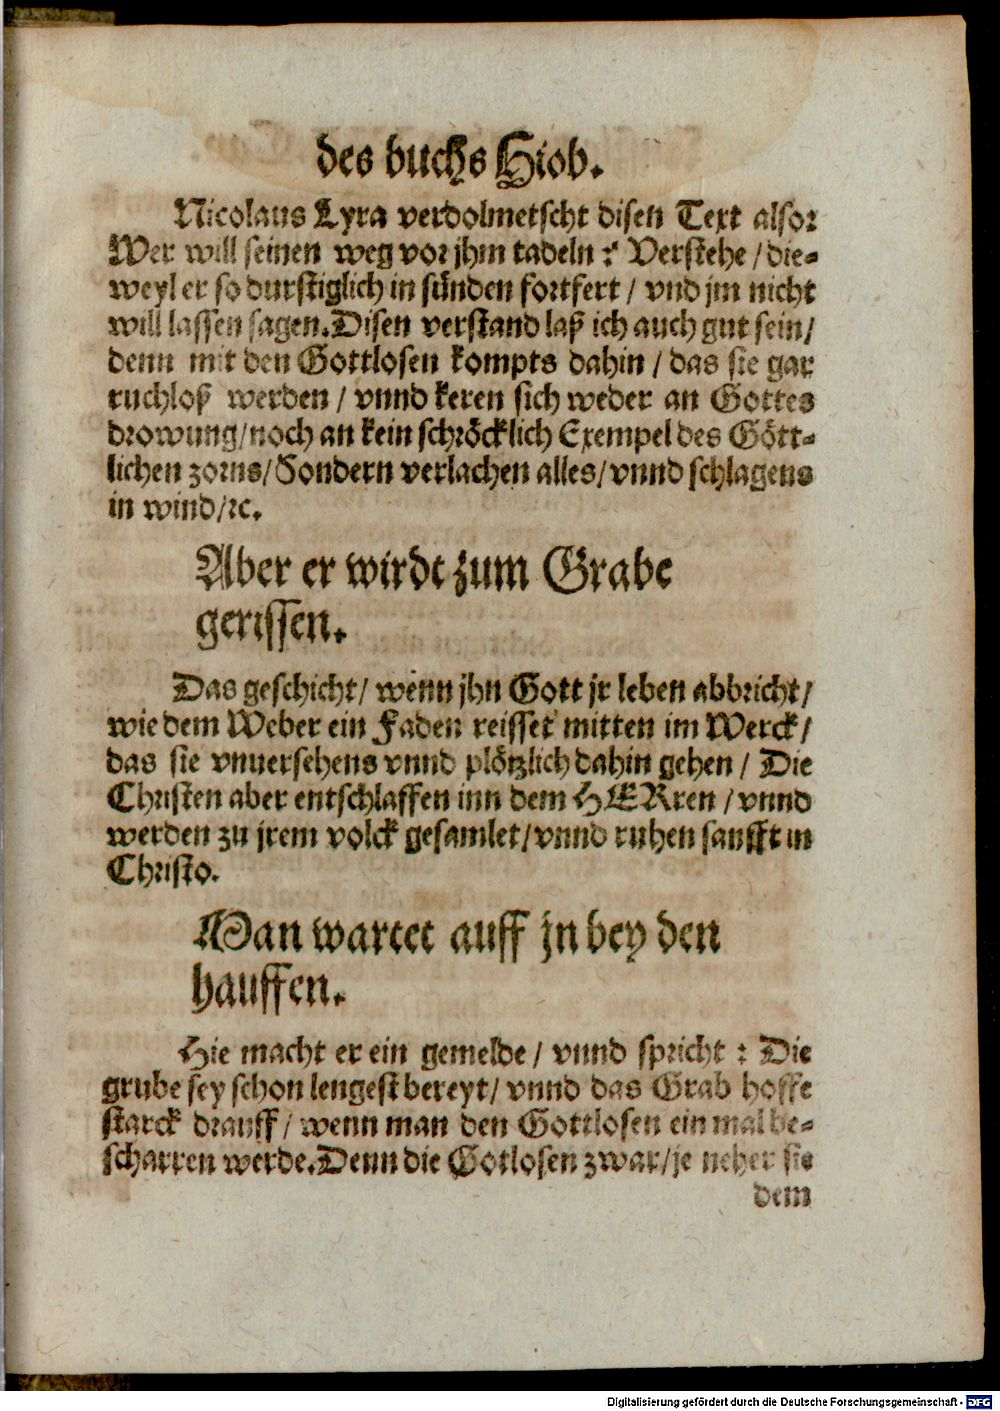 des buchs Hiob.
Nicolaus Lyra verdolmetscht disen Text also:
Wer will seinen weg vor jhm tadeln? Verstehe / die-
weyl er so durstiglich in sünden fortfert / vnd jm nicht
will lassen sagen. Disen verstand laß ich auch gut sein /
denn mit den Gottlosen kompts dahin / das sie gar
ruchloß werden / vnnd keren sich weder an Gottes
drowung / noch an kein schröcklich Exempel des Gött-
lichen zorns / Sondern verlachen alles / vnnd schlagens
in wind / ꝛc.
Aber er wirdt zum Grabe
gerissen.
Das geschicht / wenn jhn Gott jr leben abbricht /
wie dem Weber ein Faden reisset mitten im Werck /
das sie vnuersehens vnnd plötzlich dahin gehen / Die
Christen aber entschlaffen inn dem HERren / vnnd
werden zu jrem volck gesamlet / vnnd ruhen saufft in
Christo.
Man wartet auff jn bey den
hauffen.
Hie macht er ein gemelde / vnnd spricht : Die
grube sey schon lengest bereyt / vnnd das Grab hoffe
starck drauff / wenn man den Gottlosen ein mal be-
scharren werde. Denn die Gotlosen zwar / je neher sie
dem
Digitalisierung gefördert durch die Deutsche Forschungsgemeinschaft - DFG